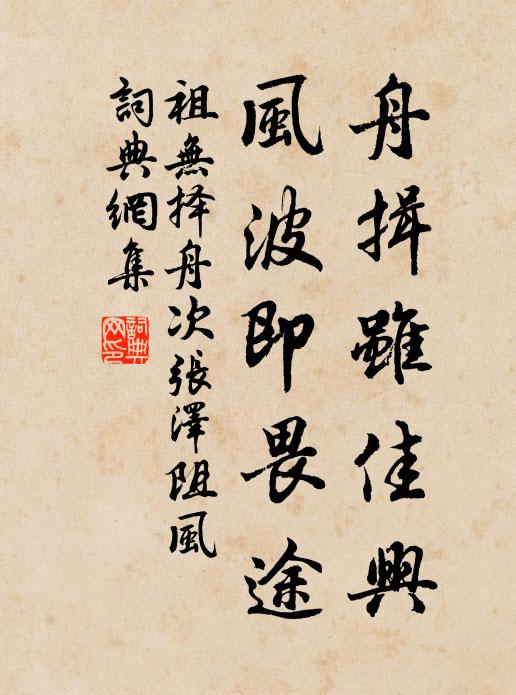 舟揖雖佳興
風波即畏途
祖無择舟次張澤阻風
詞典網集
詞典網印